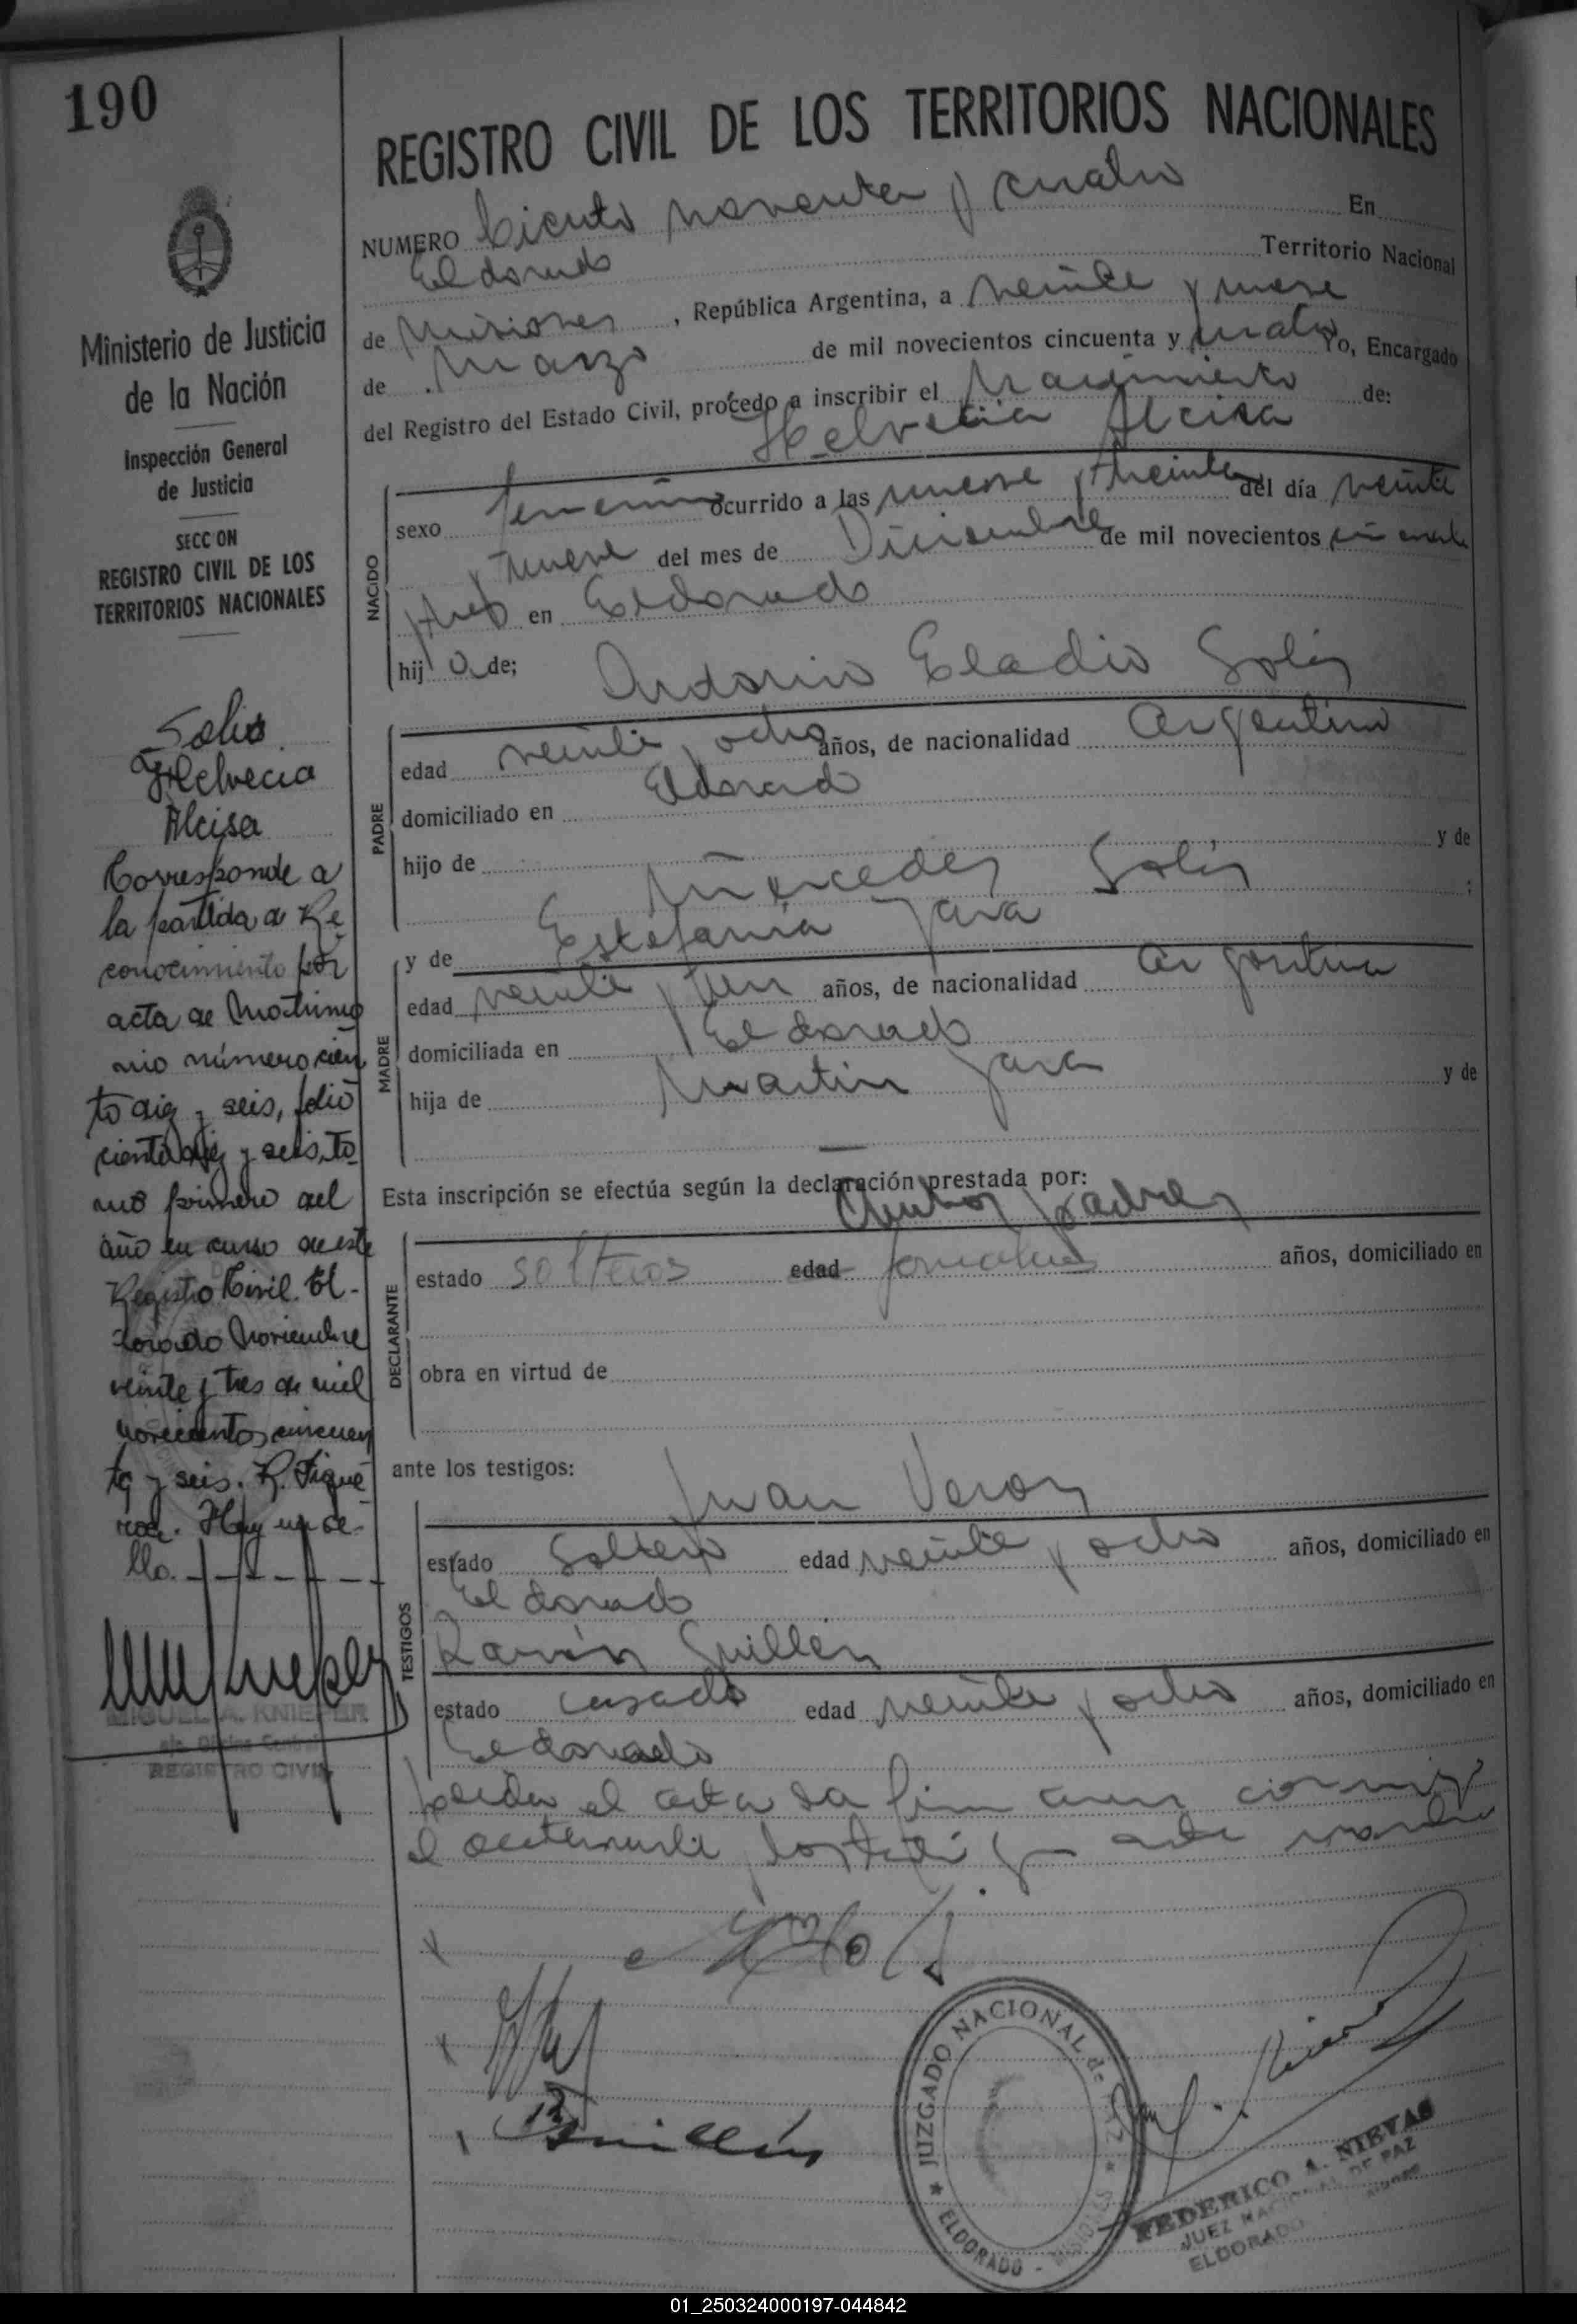 190
Ministerio de Justicia
de la Nación
Inspección General
de Justicia
SECCION
REGISTRO CIVIL DE LOS
TERRITORIOS NACIONALES
Solis
Helvecia
Alcisa
Corresponde a
la partida de Re-
conocimiento por
acta de Matrimo
nio número cien
to diez y seis, folio
ciento diez y seis, to
mo primero del
año en curso de este
Registro Civil. El-
dorado Noviembre
veinte y tres de mil
novecientos cincuen
ta y seis. R. Figue
roa. Hay un se-
llo.
MIGUEL A. KNIEPER
REGISTRO CIVIL
REGISTRO CIVIL DE LOS TERRITORIOS NACIONALES
NUMERO Ciento noventa y cuatro En
Eldorado Territorio Nacional
de Misiones, República Argentina, a veinte y nueve
de Marzo de mil novecientos cincuenta y cuatro Yo, Encargado
del Registro del Estado Civil, procedo a inscribir el Nacimiento de:
Helvecia Alcisa
NACIDO
sexo femenino ocurrido a las nueve y treinta del día veinte
y nueve del mes de Diciembre de mil novecientos cincuenta
y tres en Eldorado
hija de; Antonio Eladio Solis
PADRE
edad veinte y ocho años, de nacionalidad argentino
domiciliado en Eldorado
hijo de Mercedes Solis y de
;
y de Estefanía Jara
MADRE
edad veinte y un años, de nacionalidad argentina
domiciliada en Eldorado
hija de Martin Jara y de
—
Esta inscripción se efectúa según la declaración prestada por:
Ambos padres
DECLARANTE
estado solteros edad años, domiciliado en
obra en virtud de
ante los testigos:
Juan Veron
TESTIGOS
estado Soltero edad veinte y ocho años, domiciliado en
Eldorado
Ramón Guillen
estado casado edad veinte y ocho años, domiciliado en
Eldorado
Leida el acta la
el
JUZGADO NACIONAL de PAZ
ELDORADO - MISIONES
FEDERICO A. NIEVAS
JUEZ NACIONAL DE PAZ
ELDORADO
01_250324000197-044842